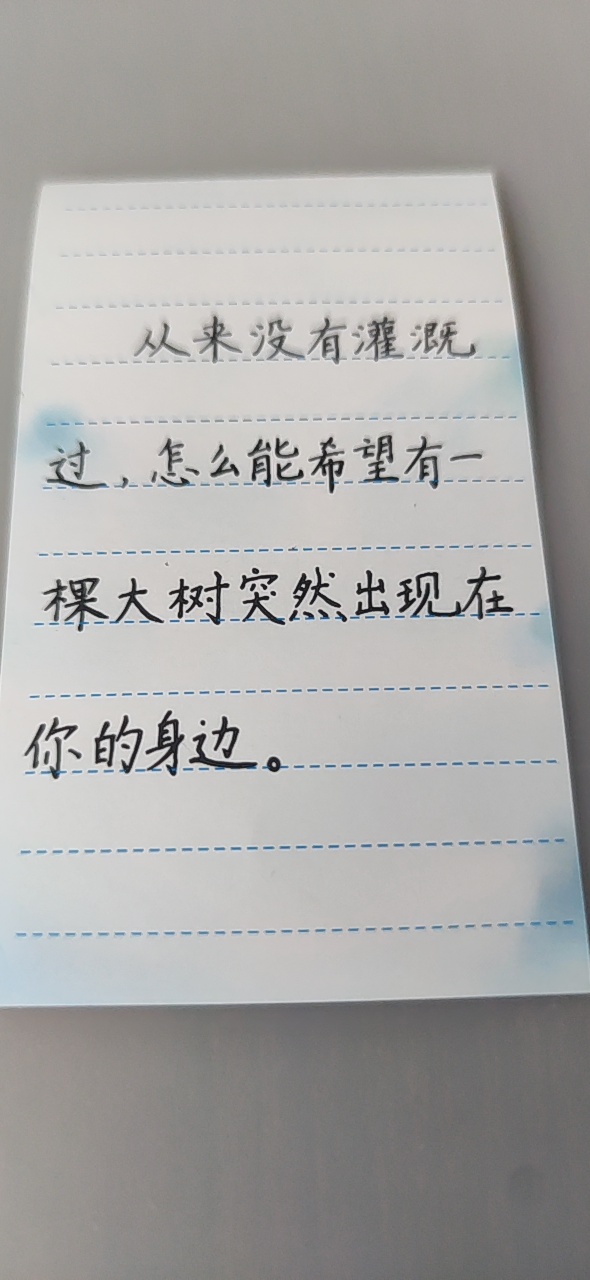 从来没有灌溉
过，怎么能希望有一
棵大树突然出现在
你的身边。